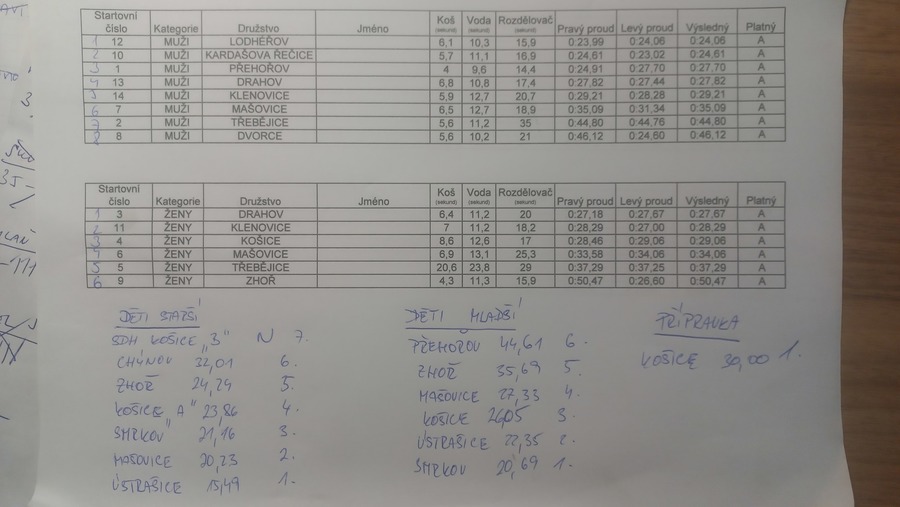 Startovní číslo Kategorie Družstvo Jméno Koš (sekund) Voda (sekund) Rozdělovač (sekund) Pravý proud Levý proud Výsledný Platný
1 12 MUŽI LODHÉŘOV 6,1 10,3 15,9 0:23,99 0:24,06 0:24,06 A
2 10 MUŽI KARDAŠOVA ŘEČICE 5,7 11,1 16,9 0:24,61 0:23,02 0:24,61 A
3 1 MUŽI PŘEHOŘOV 4 9,6 14,4 0:24,91 0:27,70 0:27,70 A
4 13 MUŽI DRAHOV 6,8 10,8 17,4 0:27,82 0:27,44 0:27,82 A
5 14 MUŽI KLENOVICE 5,9 12,7 20,7 0:29,21 0:28,28 0:29,21 A
6 7 MUŽI MAŠOVICE 6,5 12,7 18,9 0:35,09 0:31,34 0:35,09 A
7 2 MUŽI TŘEBĚJICE 5,6 11,2 35 0:44,80 0:44,76 0:44,80 A
8 8 MUŽI DVORCE 5,6 10,2 21 0:46,12 0:24,60 0:46,12 A
Startovní číslo Kategorie Družstvo Jméno Koš (sekund) Voda (sekund) Rozdělovač (sekund) Pravý proud Levý proud Výsledný Platný
1 3 ŽENY DRAHOV 6,4 11,2 20 0:27,18 0:27,67 0:27,67 A
2 11 ŽENY KLENOVICE 7 11,2 18,2 0:28,29 0:27,00 0:28,29 A
3 4 ŽENY KOŠICE 8,6 12,6 17 0:28,46 0:29,06 0:29,06 A
4 6 ŽENY MAŠOVICE 6,9 13,1 25,3 0:33,58 0:34,06 0:34,06 A
5 5 ŽENY TŘEBĚJICE 20,6 23,8 29 0:37,29 0:37,25 0:37,29 A
6 9 ŽENY ZHOŘ 4,3 11,3 15,9 0:50,47 0:26,60 0:50,47 A
DĚTI STARŠÍ
SDH KOŠICE „B" N 7.
CHÝNOV 32,01 6.
ZHOŘ 24,24 5.
KOŠICE „A" 23,86 4.
SMRKOV 21,16 3.
MAŠOVICE 20,23 2.
ÚSTRAŠICE 15,49 1.
DĚTI MLADŠÍ
PŘEHOŘOV 44,61 6.
ZHOŘ 35,69 5.
MAŠOVICE 27,33 4.
KOŠICE 26,05 3.
ÚSTRAŠICE 22,35 2.
SMRKOV 20,69 1.
PŘÍPRAVKA
KOŠICE 30,00 1.